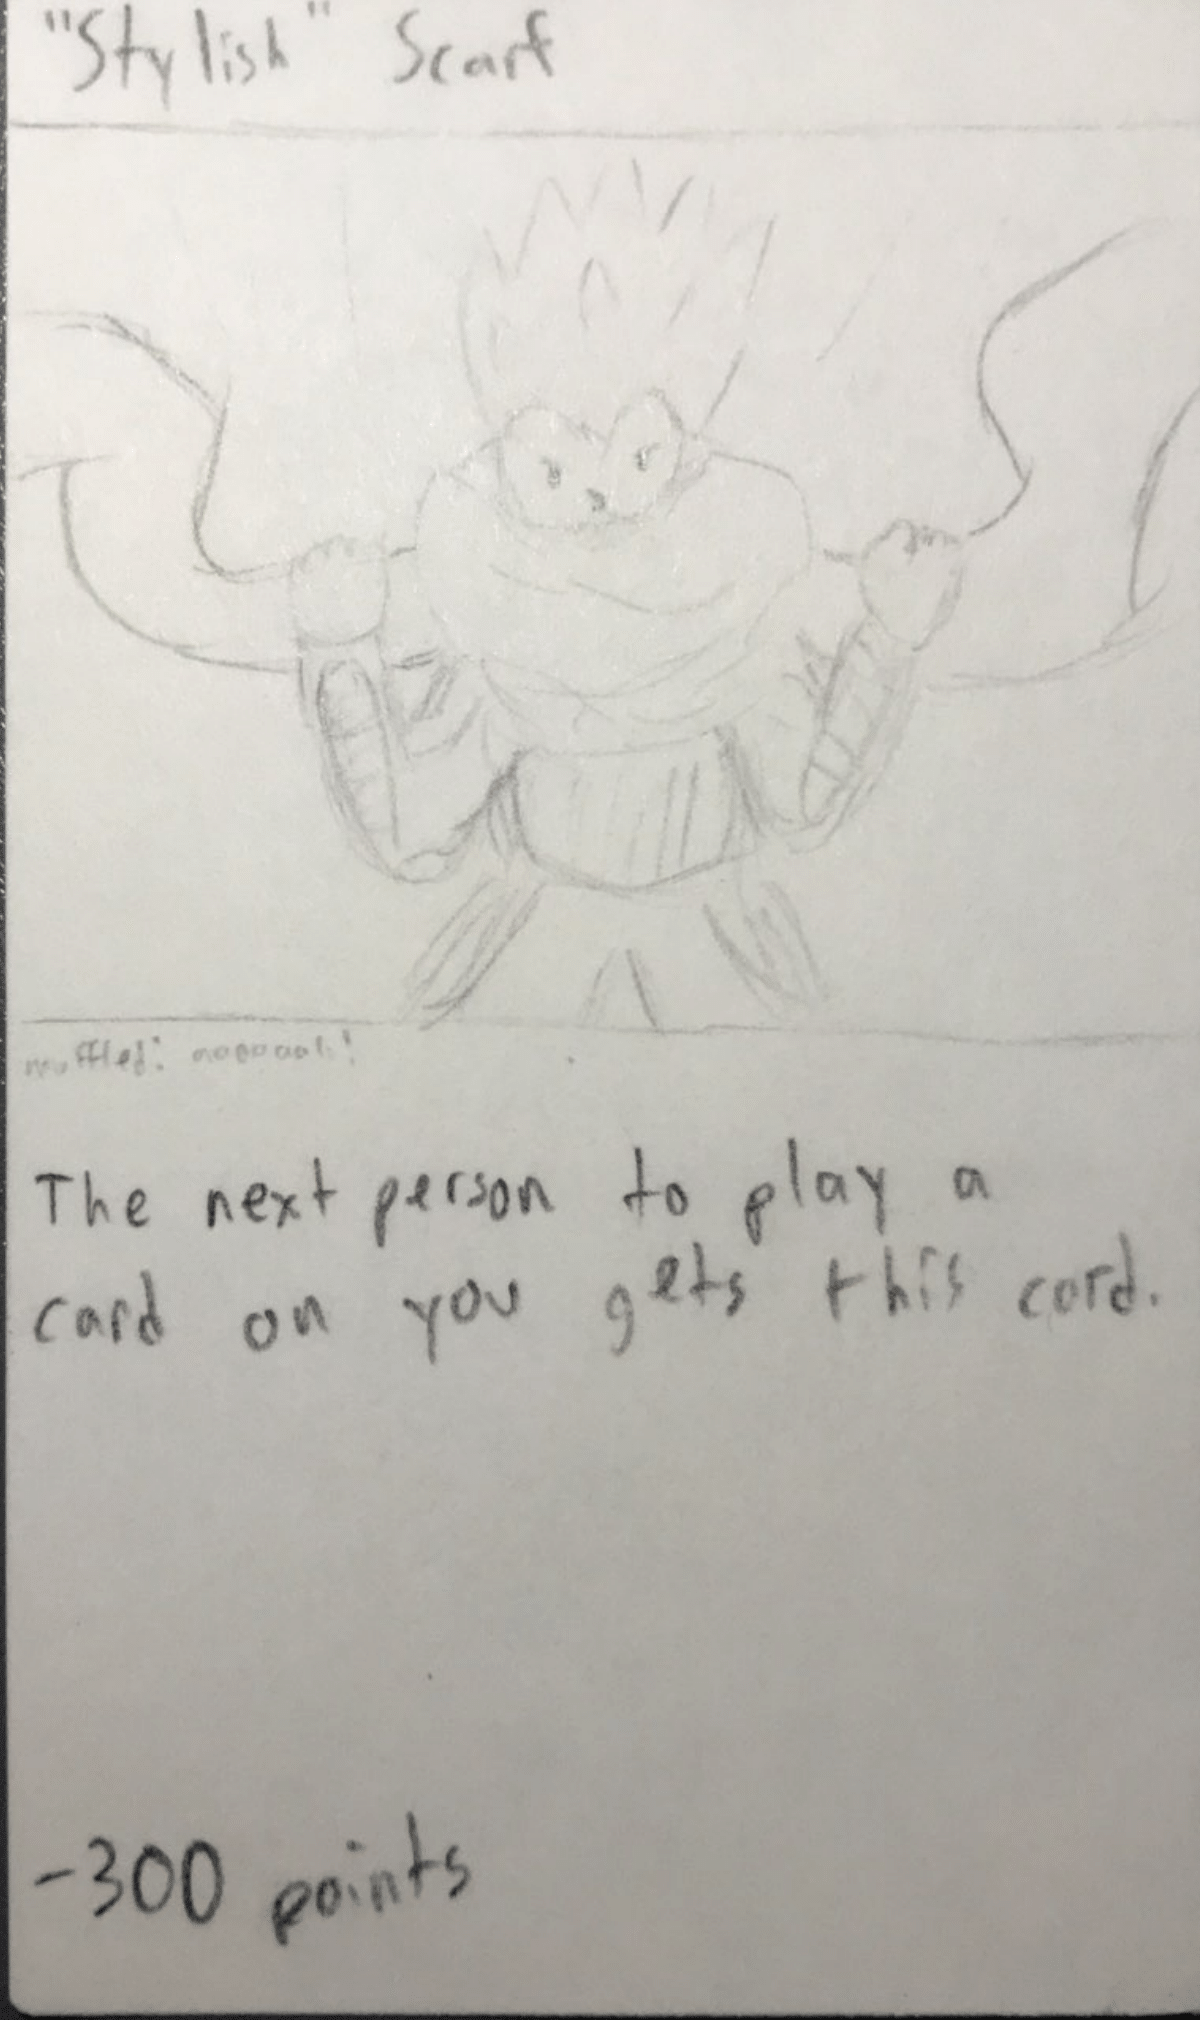 "Stylish" Scarf
muffled:
The next person to play a
card on you gets this card.
-300 points